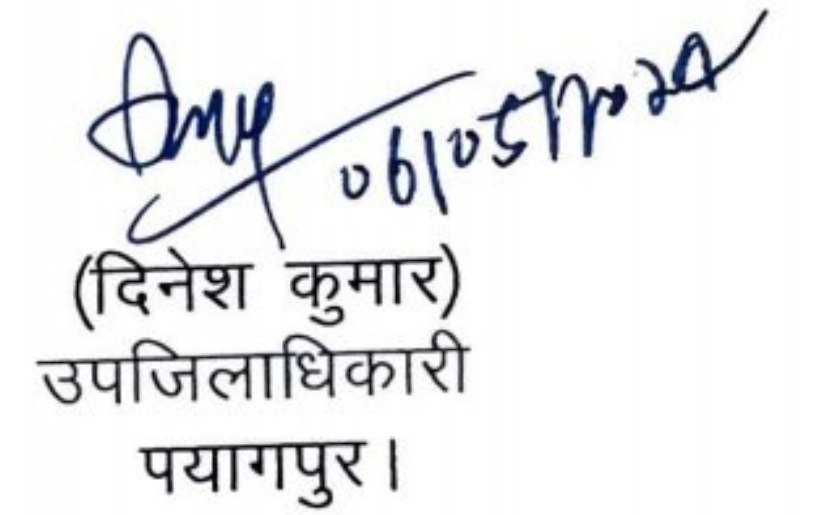 06/05/2024
(दिनेश कुमार)
उपजिलाधिकारी
पयागपुर।